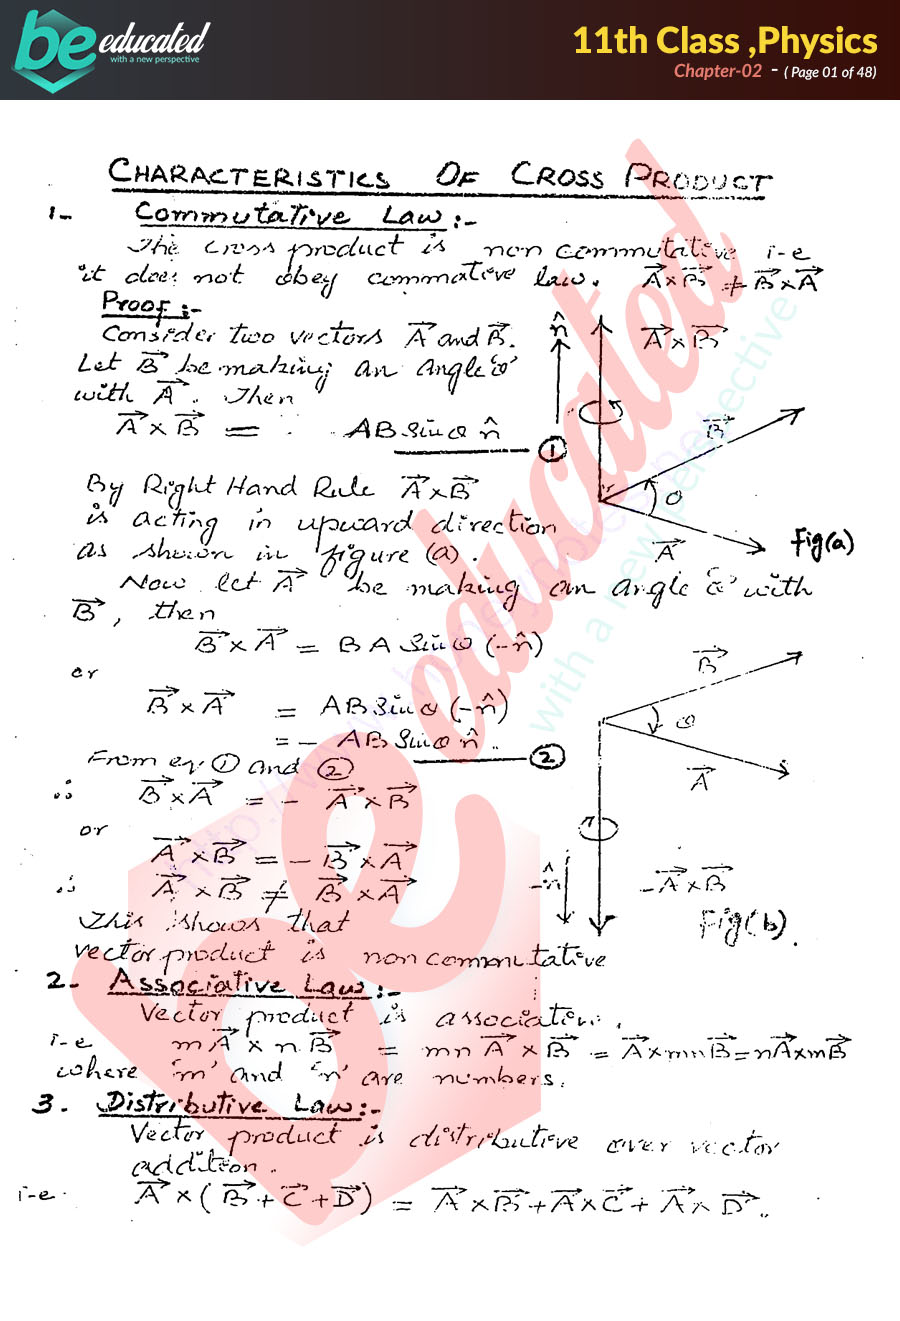 be educated
with a new perspective
11th Class ,Physics
Chapter-02 - ( Page 01 of 48)
CHARACTERISTICS OF CROSS PRODUCT
1- Commutative Law:-
The cross product is non commutative i-e
it does not obey commative law. A⃗×B⃗ ≠ B⃗×A⃗
Proof:-
Consider two vectors A⃗ and B⃗.
Let B⃗ be making an angle 'θ'
with A⃗. Then
A⃗×B⃗ = AB Sinθ n̂ ①
n̂
A⃗×B⃗
B⃗
θ
A⃗
Fig(a)
By Right Hand Rule A⃗×B⃗
is acting in upward direction
as shown in figure (a).
Now let A⃗ be making an angle 'θ' with
B⃗, then
B⃗×A⃗ = BA Sinθ (-n̂)
or
B⃗×A⃗ = AB Sinθ (-n̂)
= - AB Sinθ n̂. ②
From eq ① and ②
∴ B⃗×A⃗ = - A⃗×B⃗
or
A⃗×B⃗ = - B⃗×A⃗
∴ A⃗×B⃗ ≠ B⃗×A⃗
B⃗
θ
A⃗
-n̂
-A⃗×B⃗
Fig(b).
This shows that
vector product is non commutative
2- Associative Law:-
Vector product is associative.
i-e mA⃗ × nB⃗ = mn A⃗×B⃗ = A⃗×mnB⃗ = nA⃗×mB⃗
where 'm' and 'n' are numbers.
3. Distributive Law:-
Vector product is distributive over vector
addition.
i-e A⃗×(B⃗+C⃗+D⃗) = A⃗×B⃗+A⃗×C⃗+A⃗×D⃗.
be educated
with a new perspective